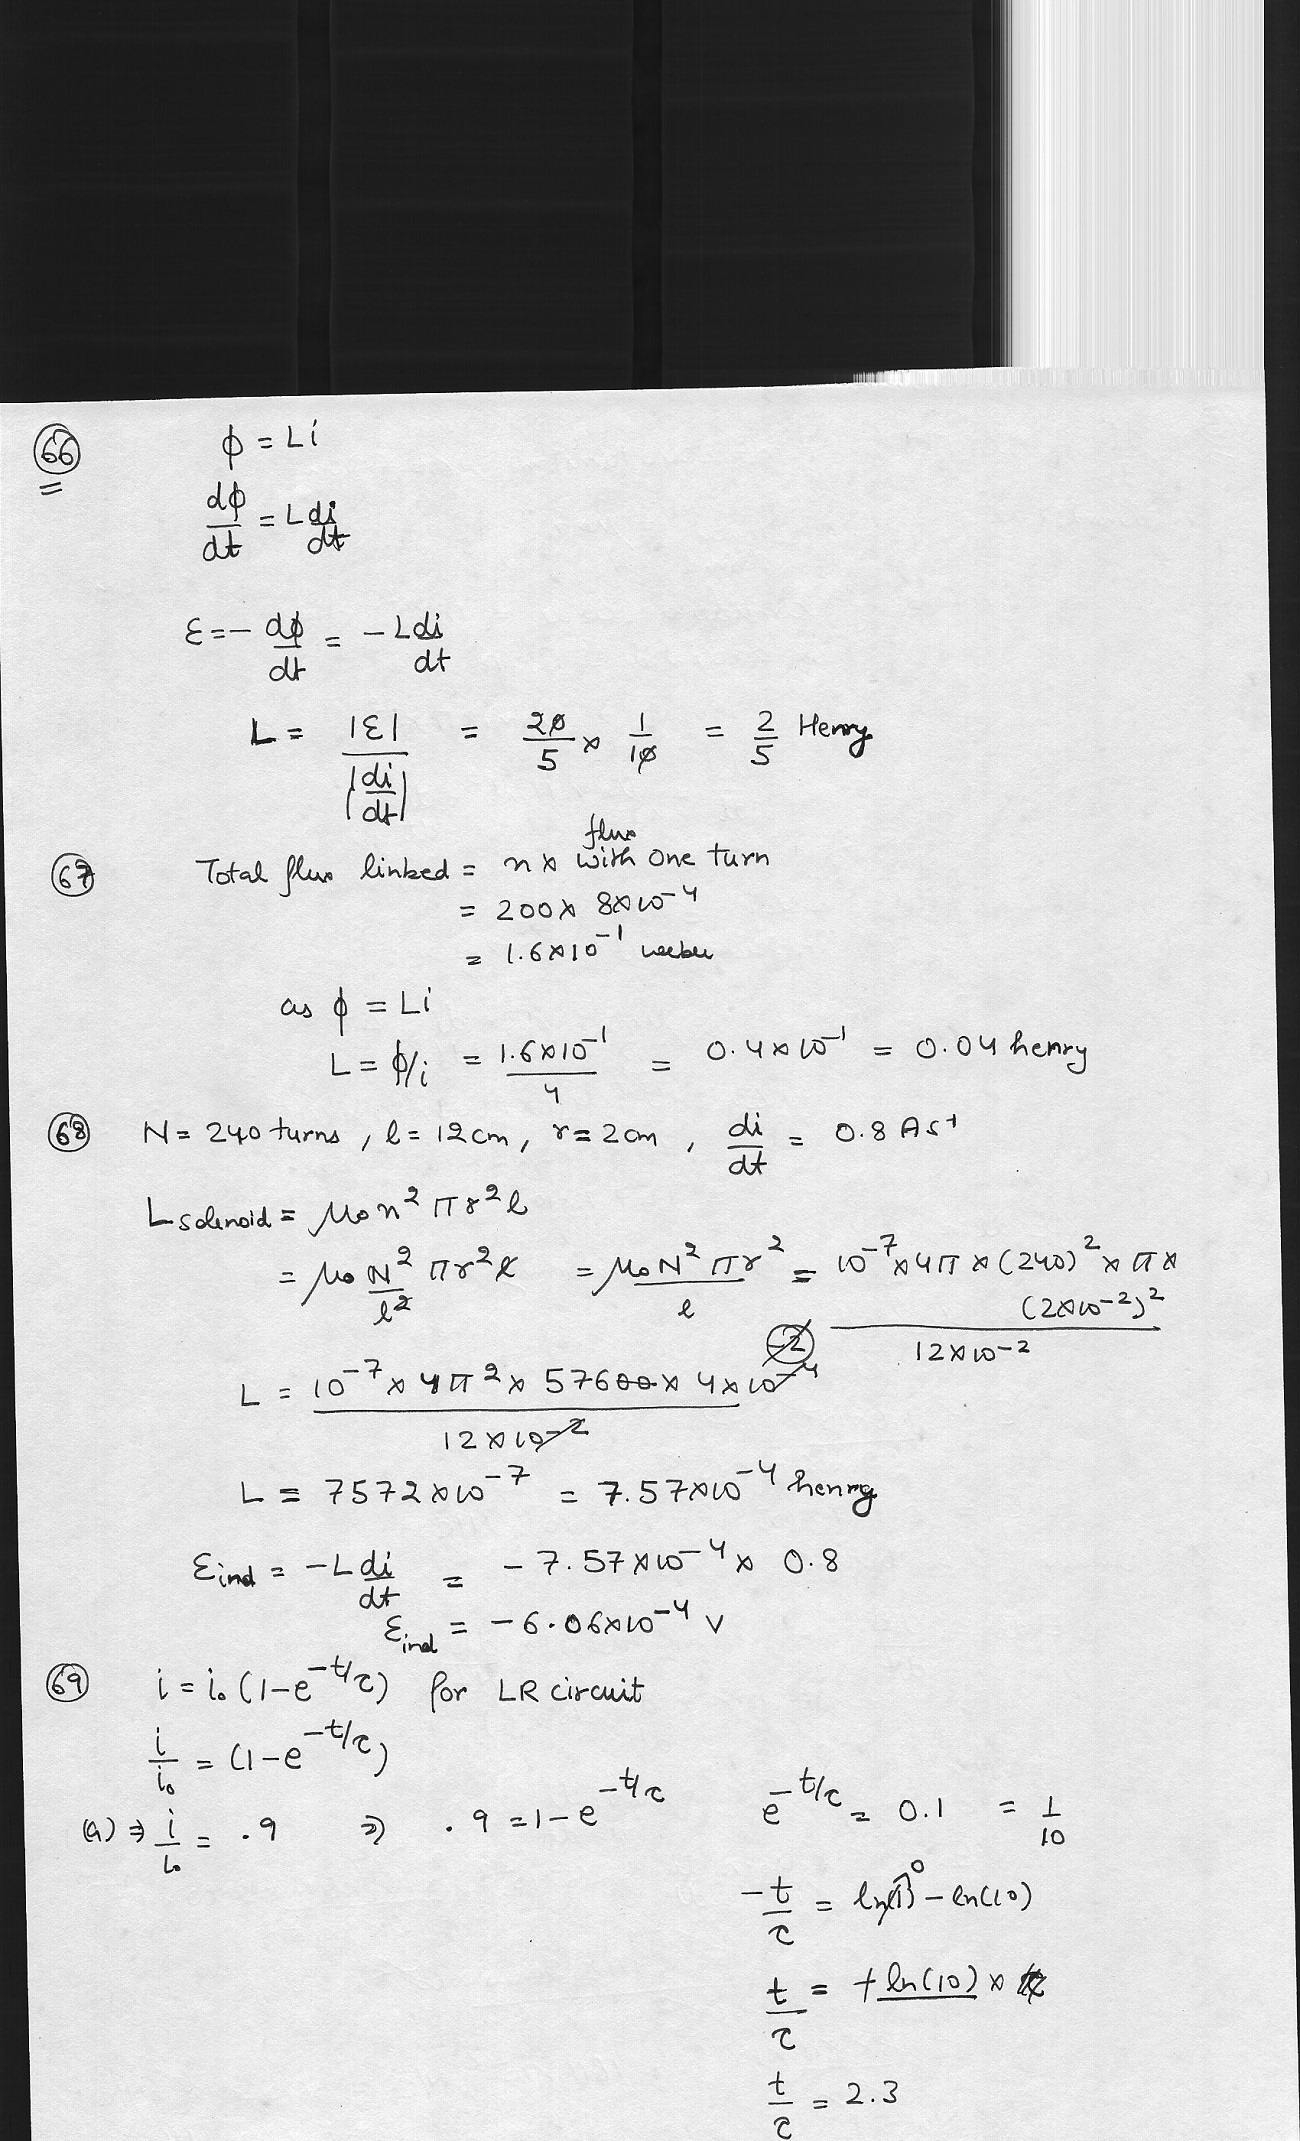 66
ϕ = Li
dϕ/dt = L di/dt
ε = − dϕ/dt = − L di/dt
L = |ε| / |di/dt| = 20/5 × 1/10 = 2/5 Henry
67 Total flux linked = n × flux with one turn
= 200 × 8×10⁻⁴
= 1.6×10⁻¹ weber
as ϕ = Li
L = ϕ/i = 1.6×10⁻¹ / 4 = 0.4×10⁻¹ = 0.04 henry
68 N = 240 turns, l = 12cm, r = 2cm, di/dt = 0.8 As⁻¹
L solenoid = μ₀n²πr²l
= μ₀ N²/l² πr²l = μ₀N²πr² / l = 10⁻⁷×4π×(240)²×π×(2×10⁻²)² / 12×10⁻²
L = 10⁻⁷×4π²×57600×4×10⁻⁴ / 12×10⁻² -2
L = 7572×10⁻⁷ = 7.57×10⁻⁴ henry
εind = −L di/dt = −7.57×10⁻⁴ × 0.8
εind = −6.06×10⁻⁴ V
69 i = i₀(1−e^−t/τ) for LR circuit
i/i₀ = (1−e^−t/τ)
(a) ⇒ i/i₀ = .9 ⇒ .9 = 1−e^−t/τ e^−t/τ = 0.1 = 1/10
−t/τ = ln(1)⁰ − ln(10)
t/τ = +ln(10) ×
t/τ = 2.3